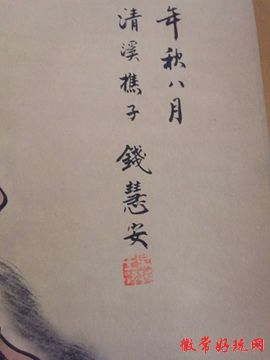 年秋八月
清溪樵子錢慧安
徽常好玩网